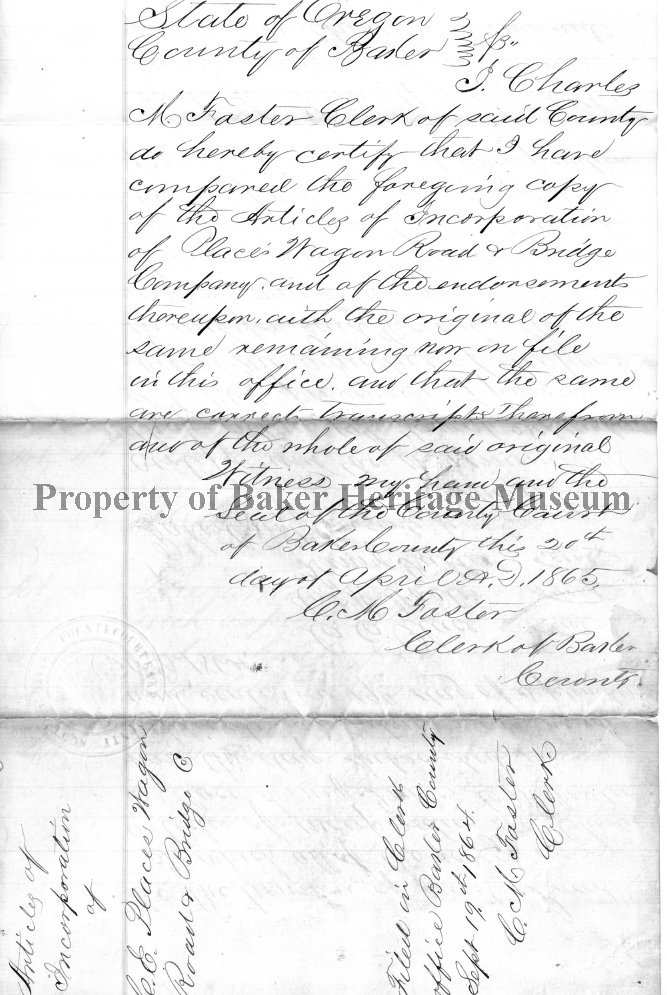 State of Oregon
County of Baker } ss
I. Charles
M Foster Clerk of said County
do hereby certify that I have
compared the foregoing copy
of the Articles of Incorporation
of Place's Wagon Road & Bridge
Company. and of the endorsements
thereupon. with the original of the
same remaining now on file
in this office. and that the same
are correct transcripts therefrom
and of the whole of said original
Witness my hand and the
Property of Baker Heritage Museum
Seal of the County Court
of Baker County this 20th
day of April A.D. 1865.
C. M Foster
Clerk of Baker
County.
Articles of
Incorporation
of
C. E. Places Wagon
Road & Bridge C
Filed in Clerk
office Baker County
Sept 19th 1864.
C. M Foster
Clerk